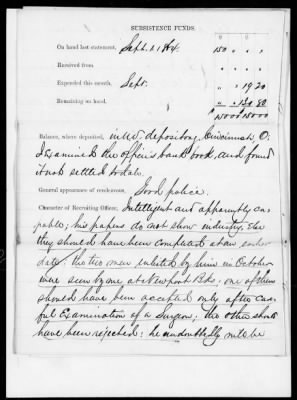 SUBSISTENCE FUNDS.
On hand last statement, Sept. 1. 1884. 150 " "
Received from " " "
Expended this month, Sept. " " 19 20
Remaining on hand, " " 130 80
150 00 150 00
Balance, where deposited, in U.S. depository, Cincinnati, O.
I examined the officer's bank book, and found
it not settled to date.
General appearance of rendezvous, Good police.
Character of Recruiting Officer, Intelligent and apparently ca-
pable; his papers do not show industry, else
they should have been completed at an earlier
date. The two men enlisted by him in October
were seen by me at Newport Bks; one of them
should have been accepted only after care-
ful Examination of a Surgeon; the other should
have been rejected: he undoubtedly will be